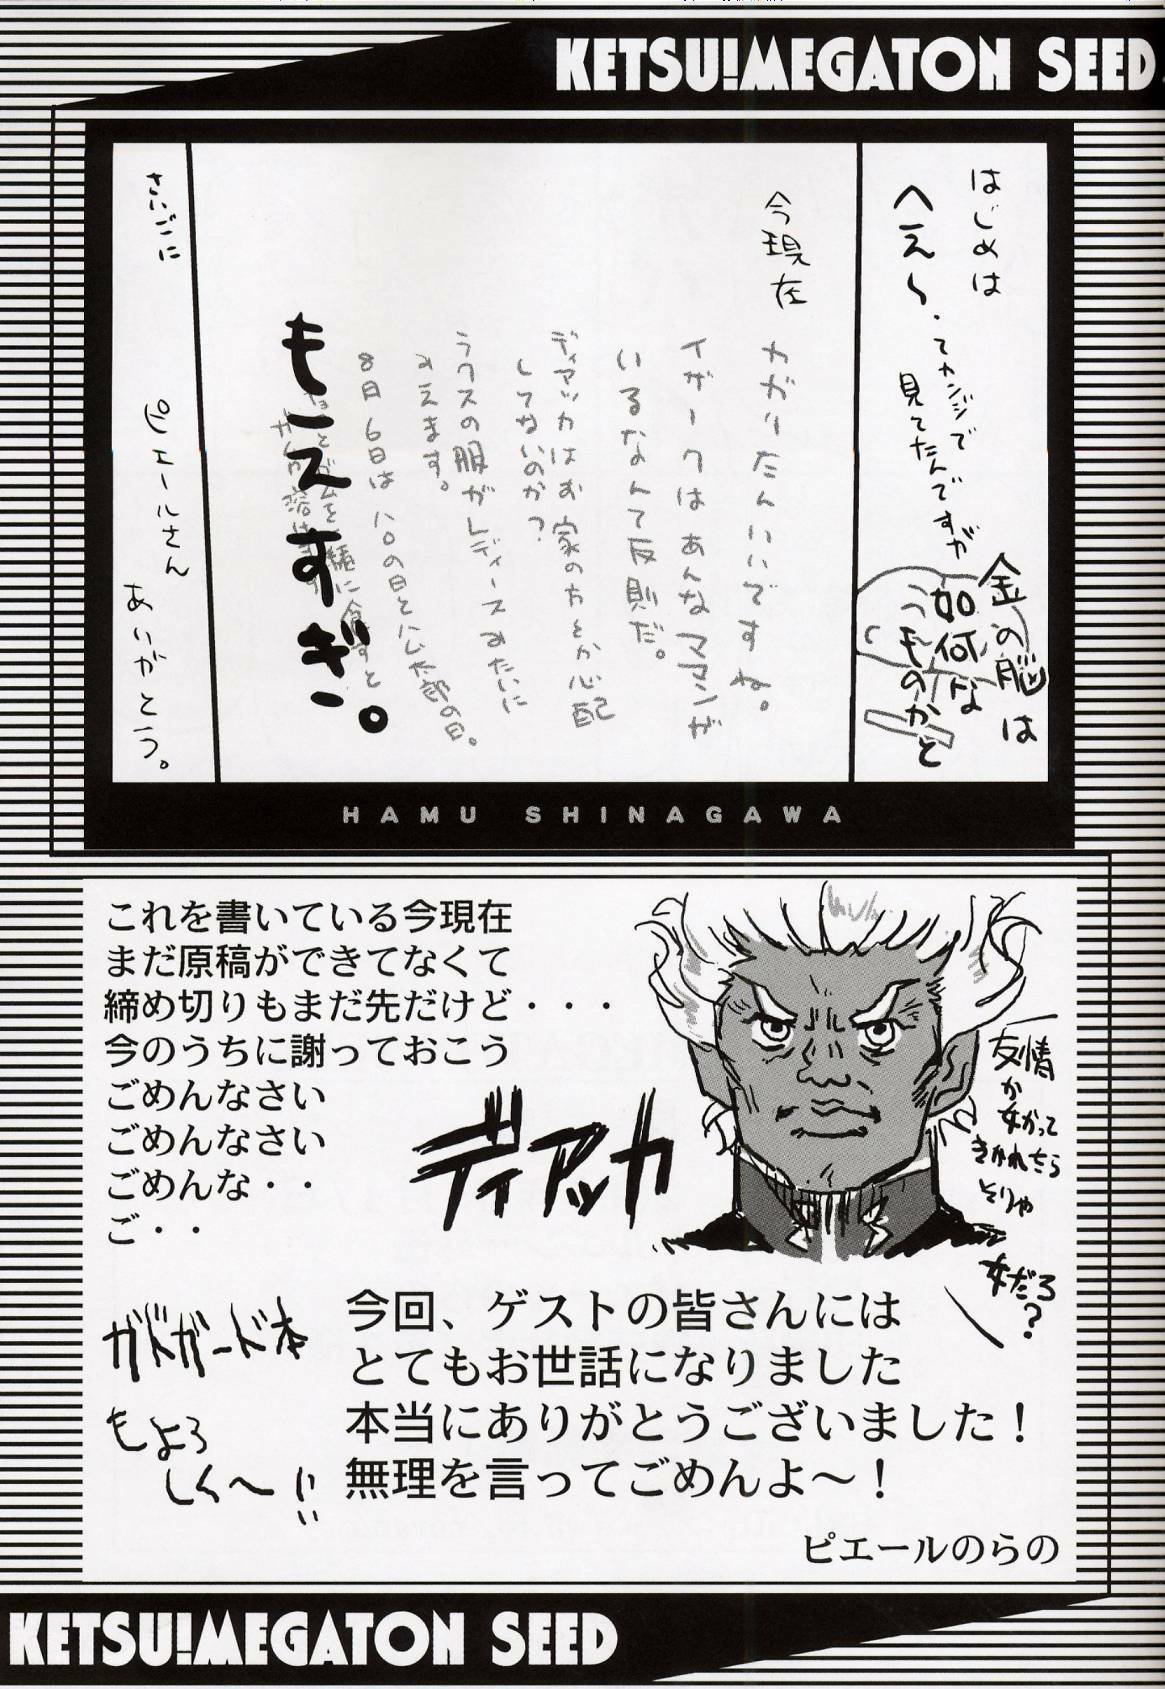 KETSU!MEGATON SEED
はじめは
へえ〜・てカンジで
見てたんですが
金の脳は
如何な
ものかと
今現在
カガリたんいいですね。
イザークはあんなママンが
いるなんて反則だ。
ディアッカはお家の方とか心配
してないのか？
ラクスの服がレディースみたいに
みえます。
8月6日はハムの日とハム太郎の日。
もーえすぎー。
さいごに
ピエールさん
ありがとう。
HAMU SHINAGAWA
これを書いている今現在
まだ原稿ができてなくて
締め切りもまだ先だけど・・・
今のうちに謝っておこう
ごめんなさい
ごめんなさい
ごめんな・・
ご・・
ディアッカ
友情
か女かって
きかれたら
そりゃ
女だろ？
ガドガードも本
もよろ
しく〜!!
今回、ゲストの皆さんには
とてもお世話になりました
本当にありがとうございました！
無理を言ってごめんよ〜！
ピエールのらの
KETSU!MEGATON SEED